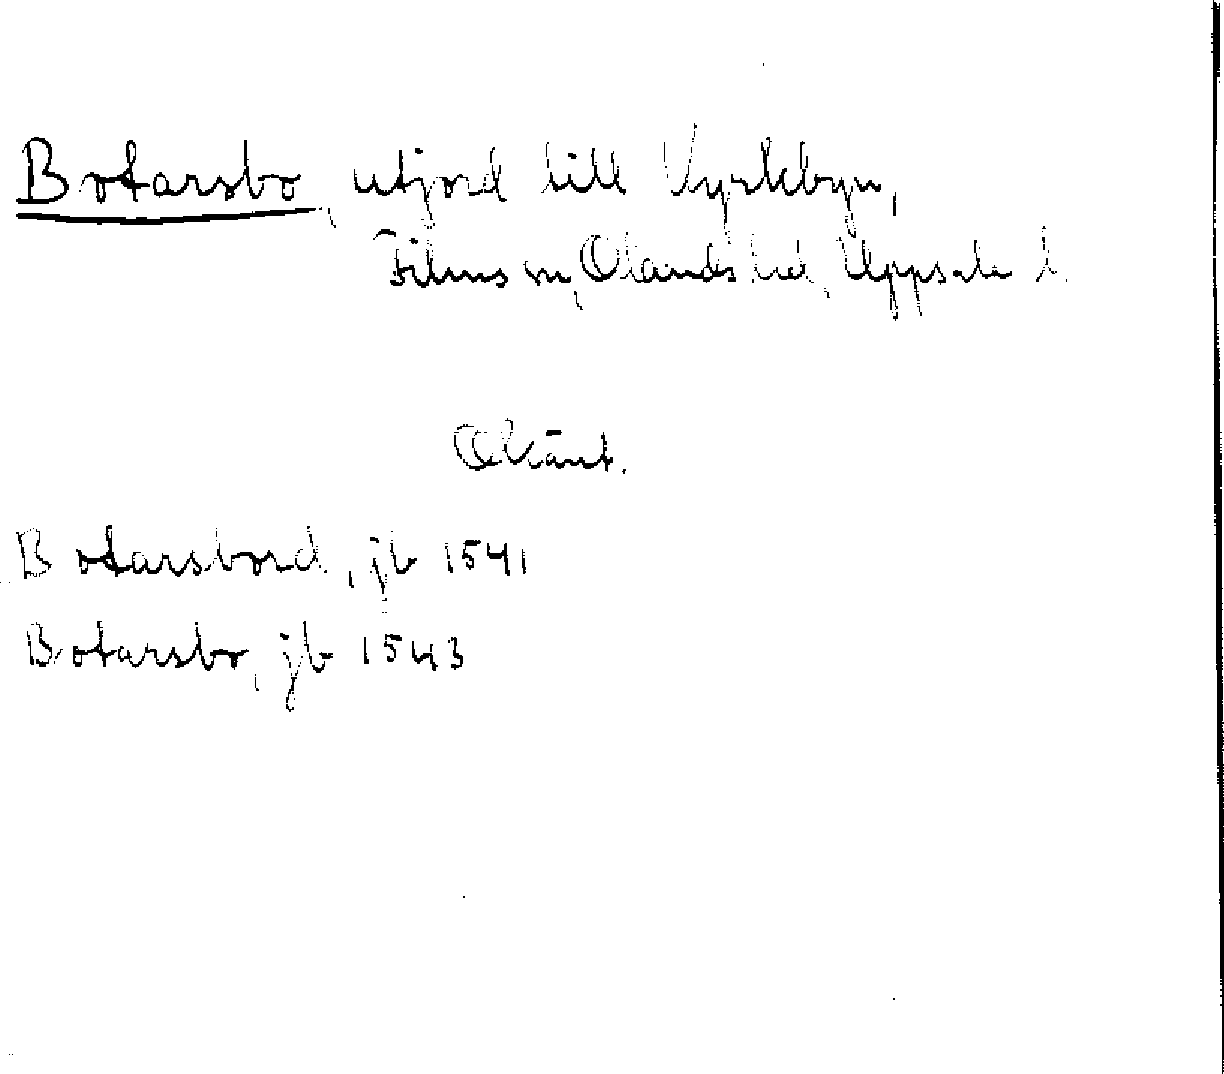 Botarsbo, utjord till Vyrlebyn,
Films sn, Olands hd, Uppsala l.
Okänt.
Botarsbord, jb 1541
Botarsbo, jb 1543